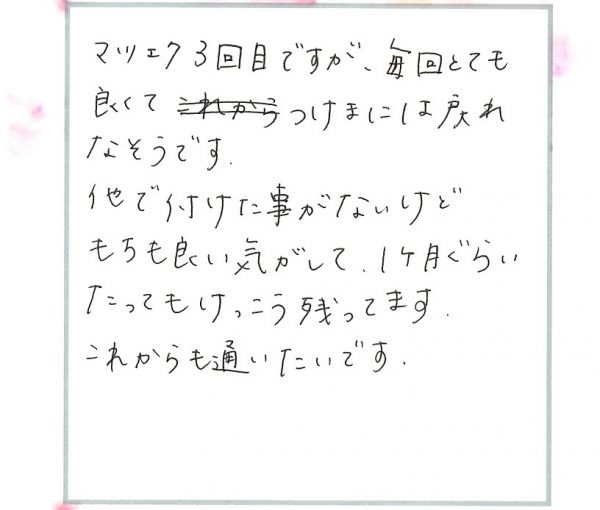 マツエク3回目ですが、毎回とても
良くて これから つけまには戻れ
なそうです.
他で付けた事がないけど
もちも良い気がして、1ヶ月ぐらい
たってもけっこう残ってます.
これからも通いたいです.